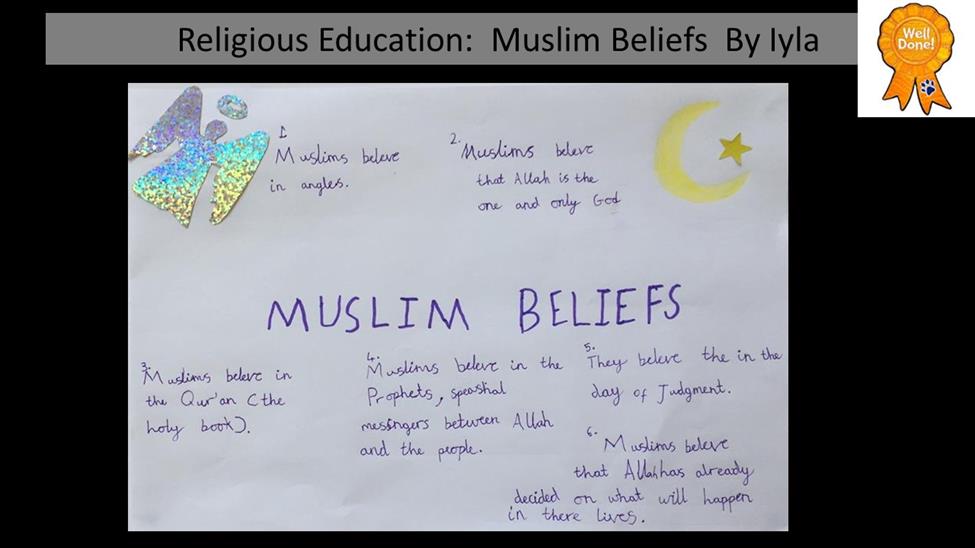 Religious Education:  Muslim Beliefs  By Iyla
Well
Done!
1.
Muslims beleve
in angles.
2.
Muslims beleve
that Allah is the
one and only God
MUSLIM BELIEFS
3.
Muslims beleve in
the Qur'an (the
holy book).
4.
Muslims beleve in the
Prophets, speashal
messingers between Allah
and the people.
5.
They beleve the in the
day of Judgment.
6.
Muslims beleve
that Allah has already
decided on what will happen
in there lives.